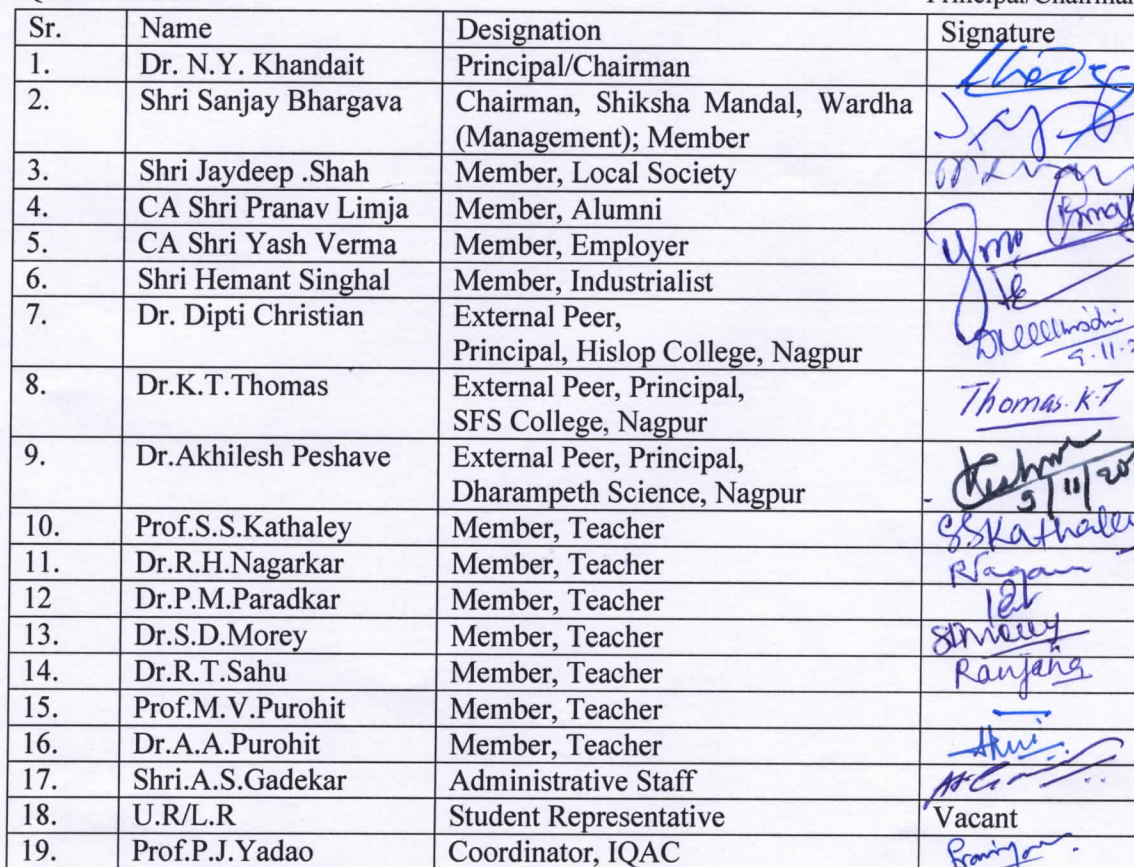 Principal/Chairman
Sr. Name Designation Signature
1. Dr. N.Y. Khandait Principal/Chairman
2. Shri Sanjay Bhargava Chairman, Shiksha Mandal, Wardha
(Management); Member
3. Shri Jaydeep .Shah Member, Local Society
4. CA Shri Pranav Limja Member, Alumni
5. CA Shri Yash Verma Member, Employer
6. Shri Hemant Singhal Member, Industrialist
7. Dr. Dipti Christian External Peer,
Principal, Hislop College, Nagpur
9.11.2
8. Dr.K.T.Thomas External Peer, Principal, Thomas. K.T
SFS College, Nagpur
9. Dr.Akhilesh Peshave External Peer, Principal,
Dharampeth Science, Nagpur 9/11/20
10. Prof.S.S.Kathaley Member, Teacher S.S.Kathaley
11. Dr.R.H.Nagarkar Member, Teacher
12 Dr.P.M.Paradkar Member, Teacher
13. Dr.S.D.Morey Member, Teacher SDMorey
14. Dr.R.T.Sahu Member, Teacher Ranjana
15. Prof.M.V.Purohit Member, Teacher
16. Dr.A.A.Purohit Member, Teacher
17. Shri.A.S.Gadekar Administrative Staff
18. U.R/L.R Student Representative Vacant
19. Prof.P.J.Yadao Coordinator, IQAC